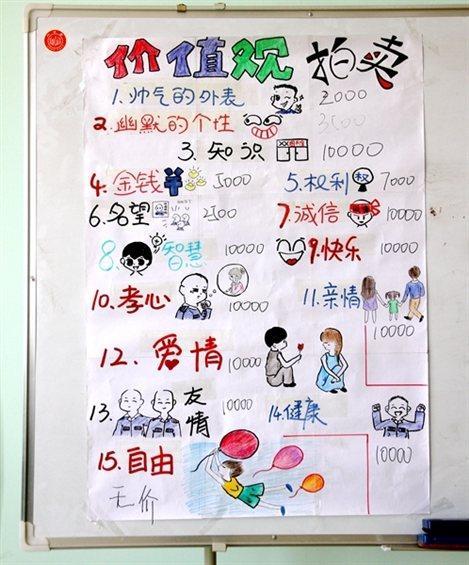 价值观拍卖
1.帅气的外表 2000
2.幽默的个性 3000
3.知识 10000
4.金钱 5000 5.权利 权 7000
6.名望 2500 7.诚信 10000
8.智慧 10000 9.快乐 10000
10.孝心 10000 11.亲情 10000
12.爱情 10000
13.友情 10000 14.健康 10000
15.自由
无价